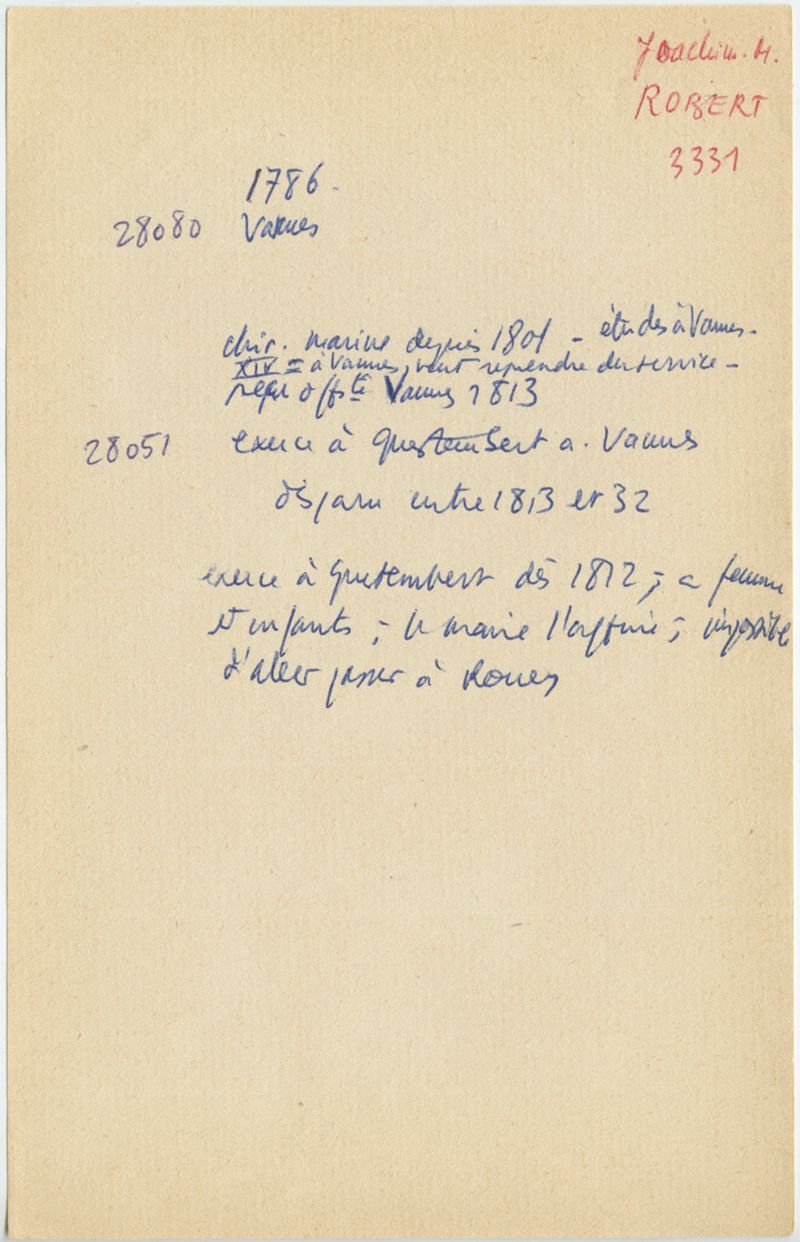 Joachim. M.
ROBERT
3331
1786.
28080 Vannes
chir. marine depuis 1801 - études à Vannes.
XIV = à Vannes, veut reprendre du service -
reçu offté Vannes 1813
28051 exerce à Questembert a. Vannes
disparu entre 1813 et 32
exerce à Questembert dès 1812 ; a femme
et enfants ; le maire ; impossible
d'aller passer à Rennes